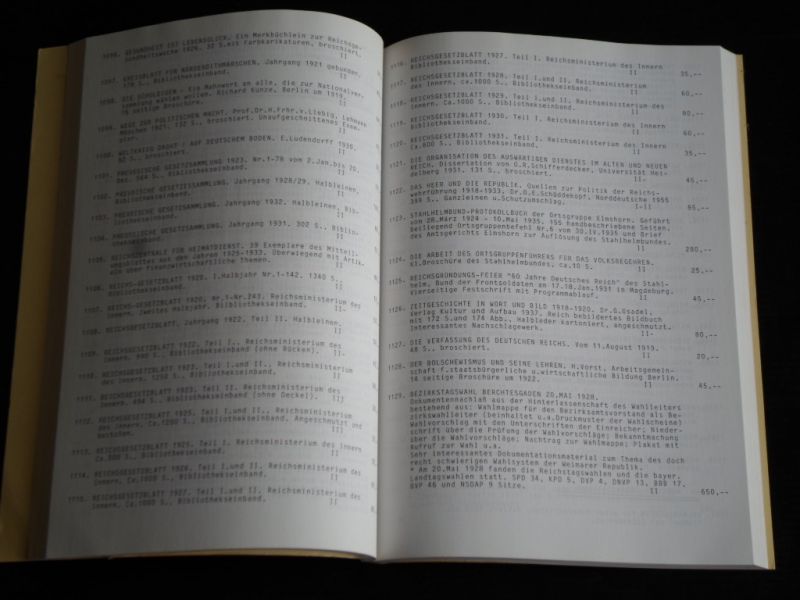 1096. GESUNDHEIT IST LEBENSGLÜCK. Ein Merkbüchlein zur Reichsge-
sundheitswoche 1926. 32 S.mit Farbkarikaturen, broschiert.
II
1097. KREISBLATT FÜR NORDERDITHMARSCHEN, Jahrgang 1921 gebunden,
178 S., Bibliothekseinband.
II
1098. DIE SCHULDIGEN - Ein Mahnwort an alle, die zur Nationalver-
sammlung wählen wollen. Richard Kunze, Berlin um 1919,
16 seitige Broschüre.
II
1099. WEGE ZUR POLITISCHEN MACHT. Prof.Dr.H.Frhr.v.Liebig, Lehmann
München 1921, 132 S., broschiert. Unaufgeschnittenes Exem-
plar.
1100. WELTKRIEG DROHT - AUF DEUTSCHEM BODEN. E.Ludendorff 1930,
S., broschiert.
II
1101. PREUSISCHE GESETZSAMMLUNG 1923. Nr.1-78 vom 2.Jan.bis 20.
Dez. 564 S., Bibliothekseinband.
II
1102. PREUSISCHE GESETZSAMMLUNG, Jahrgang 1928/29. Halbleinen,
Bibliothekseinband.
1103. PREUSISCHE GESETZSAMMLUNG. Jahrgang 1932. Halbleinen, Bib-
liothekseinband.
1104. PREUSISCHE GESETZSAMMLUNG. Jahrgang 1931. 302 S., Bibli-
othekseinband.
1105. REICHSZENTRALE FÜR HEIMATDIENST, 39 Exemplare des Mitteil-
ungsblattes aus den Jahren 1926-1933. Überwiegend mit Artik-
eln über finanzwirtschaftliche Themen.
II
1106. REICHS-GESETZBLATT 1920. I.Halbjahr Nr.1-142. 1340 S.,
Bibliothekseinband.
1107. REICHS-GESETZBLATT 1920. nr.1-Nr.243. Reichsministerium des
Innern, Zweites Halbjahr. Bibliothekseinband.
II
1108. REICHSGESETZBLATT, Jahrgang 1922. Teil II. Halbleinen,
II-
1109. REICHSGESETZBLATT 1922. Teil I., Reichsministerium des
Innern, S., Bibliothekseinband (ohne Rücken).
II-
1110. REICHSGESETZBLATT 1922, Teil I.und II., Reichsministerium
des Innern. S., Bibliothekseinband.
1111. REICHSGESETZBLATT 1923. Teil II. Reichsministerium des
Innern. S., Bibliothekseinband (ohne Deckel).
1112. REICHSGESETZBLATT 1925, Teil I.und II., Reichsministerium
des Innern, Ca.1200 S., Bibliothekseinband. Angeschmutzt und
1113. REICHSGESETZBLATT 1925. Teil I. Reichsministerium des Innern
Ca.900 S., Bibliothekseinband.
II
1114. REICHSGESETZBLATT 1926. Teil I und II, Reichsministerium des
Innern, Ca.1000 S., Bibliothekseinband.
II
1115. REICHSGESETZBLATT 1927 Teil I.und II. Reichsministerium des
Innern. Ca.1000 S., Bibliothekseinband.
II
1116. REICHSGESETZBLATT 1927. Teil I. Reichsministerium des Innern
Bibliothekseinband. II 35,--
1117. REICHSGESETZBLATT 1928, Teil I.und II. Reichsministerium
des Innern, ca.1000 S., Bibliothekseinband. II 60,--
1118. REICHSGESETZBLATT 1929, Teil I.und II. Reichsministerium des
Innern. Ca.1000 S., Bibliothekseinband. II 60,--
1119. REICHSGESETZBLATT 1930. Teil I. Reichsministerium des Innern
Bibliothekseinband. II 60,--
1120. REICHSGESETZBLATT 1931. Teil I. Reichsministerium des Innern
Ca.800 S., Bibliothekseinband. II 35,--
1121. DIE ORGANISATION DES AUSWÄRTIGEN DIENSTES IM ALTEN UND NEUEN
REICH. Dissertation von G.R.Schifferdecker, Universität Hei-
delberg 1931. 131 S., broschiert. II 45,--
1122. DAS HEER UND DIE REPUBLIK. Quellen zur Politik der Reichs-
wehrführung 1918-1933. Dr.O.E.Schüddekopf. Norddeutsche 1955
S., Ganzleinen u.Schutzumschlag. I-II 65,--
1123. STAHLHELMBUND-PROTOKOLLBUCH der Ortsgruppe Elmshorn. Geführt
vom 26.März 1924 - 10.Mai 1935. 155 handbeschriebene Seiten.
Beiliegend Ortsgruppenbefehl Nr.6 vom 30.IV.1935 und Brief
des Amtsgerichts Elmshorn zur Auflösung des Stahlhelmbundes.
II 280,--
1124. DIE ARBEIT DES ORTSGRUPPENFÜHRERS FÜR DAS VOLKSBEGEHREN.
kl.Broschüre des Stahlhelmbundes, ca.10 S. II 25,--
1125. REICHSGRÜNDUNGS-FEIER "60 Jahre Deutsches Reich" des Stahl-
helm, Bund der Frontsoldaten am 17.18.Jan.1931 in Magdeburg.
Vierseitige Festschrift mit Programmablauf. II 45,--
1126. ZEITGESCHICHTE IN WORT UND BILD 1918-1920. Dr.G.Osadel,
Verlag Kultur und Aufbau 1937. Reich bebildertes Bildbuch
mit 172 S.und 174 Abb., Halbleder kartoniert, angeschmutzt.
Interessantes Nachschlagewerk. II- 80,--
1127. DIE VERFASSUNG DES DEUTSCHEN REICHS. Vom 11.August 1919.
48 S., broschiert. II 20,--
1128. DER BOLSCHEWISMUS UND SEINE LEHREN, H.Vorst, Arbeitsgemein-
schaft f.staatsbürgerliche u.wirtschaftliche Bildung Berlin.
14 seitige Broschüre um 1922. II 45,--
1129. BEZIRKSTAGSWAHL BERCHTESGADEN 20.MAI 1928.
Dokumentennachlaß aus der Hinterlassenschaft des Wahlleiters
bestehend aus: Wahlmappe für den Bezirksamtsvorstand als Be-
zirkswahlleiter (beinhaltet u.a.Druckmuster der Wahlscheine)
Wahlvorschlag mit den Unterschriften der Einreicher; Nieder-
schrift über die Prüfung der Wahlvorschläge; Bekanntmachung
über die Wahlvorschläge; Nachtrag zur Wahlmappe; Plakat mit
Aufruf zur Wahl u.a.
Sehr interessantes Dokumentationsmaterial zum Thema des doch
recht schwierigen Wahlsystem der Weimarer Republik.
* Am 20.Mai 1928 fanden die Reichstagswahlen und die bayer.
Landtagswahlen statt. SPD 34, KPD 5, DVP 4, DNVP 13, BBB 17,
BVP 46 und NSDAP 9 Sitze. II 650,--